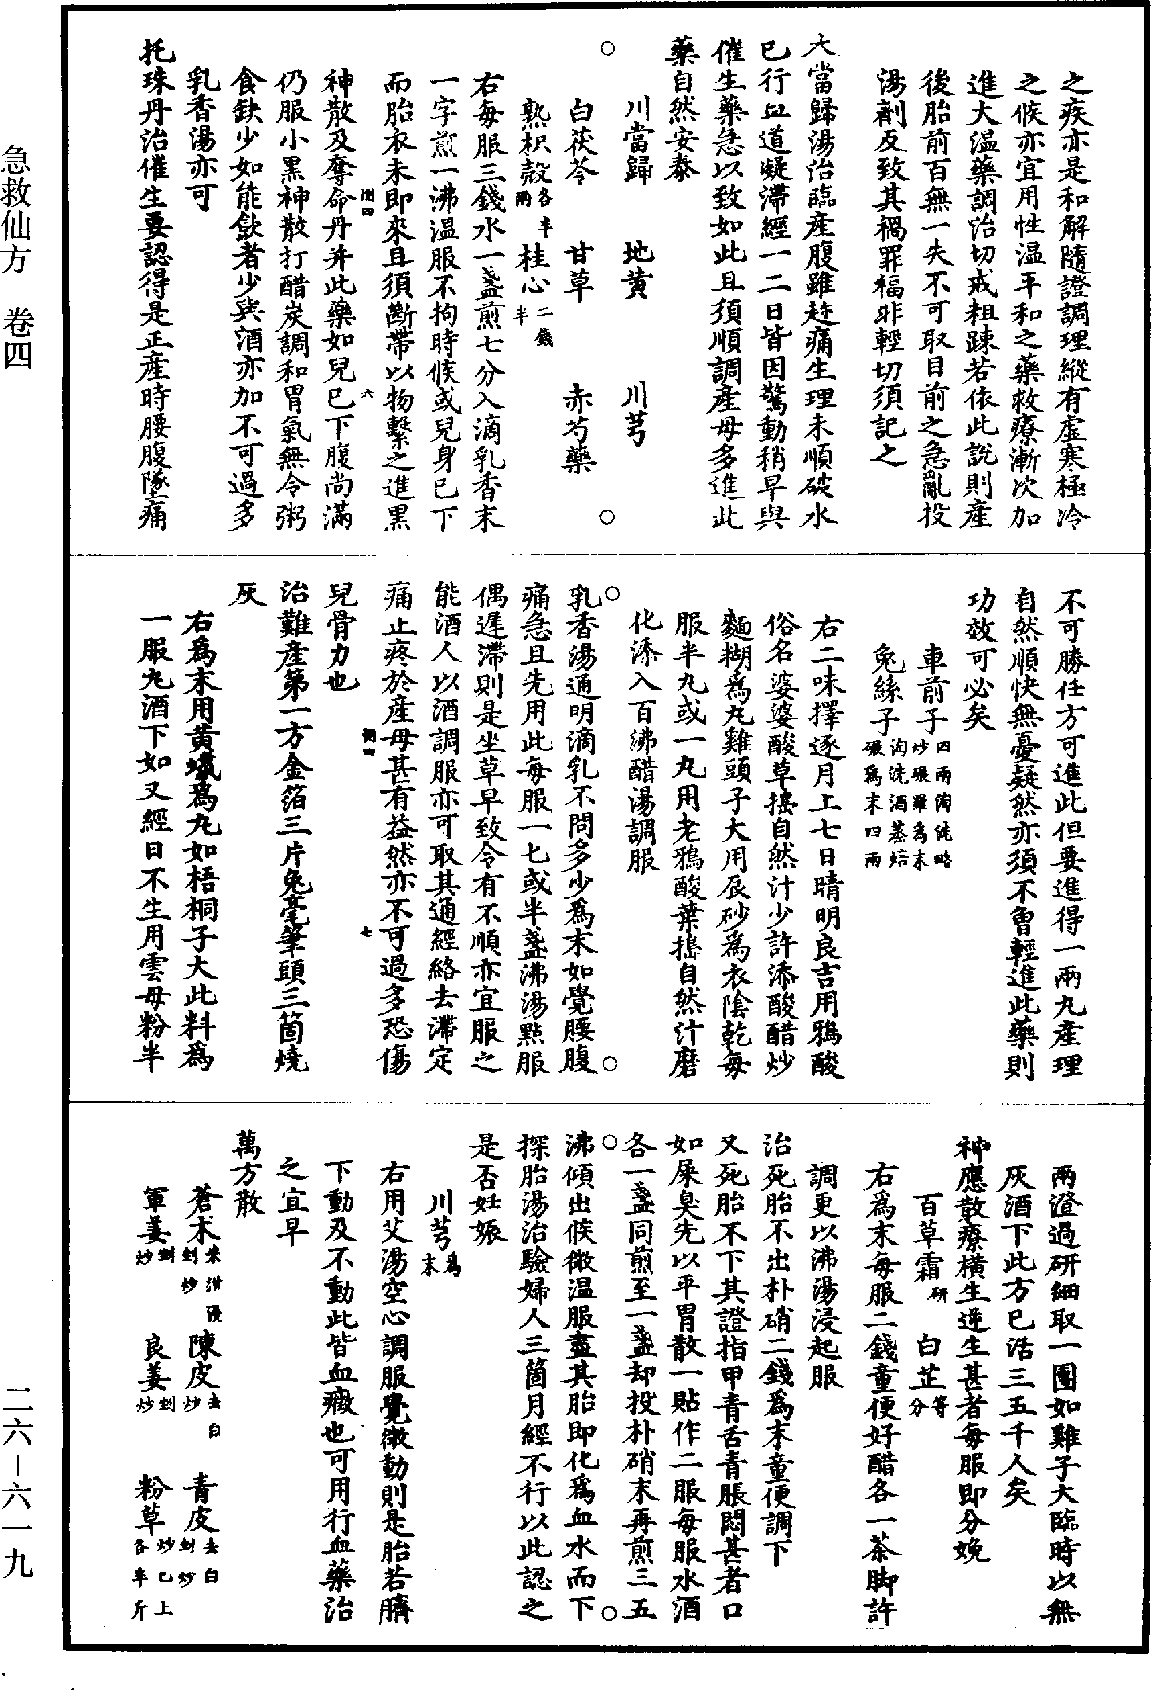 急救仙方　卷四
二六—六一九
之疾亦是和解隨證調理縱有虛寒極冷
之候亦宜用性温平和之藥救療漸次加
進大温藥調治切戒粗踈若依此說則產
後胎前百無一失不可取目前之急亂投
湯劑反致其禍罪福非輕切須記之
大當歸湯治臨產腹雖趂痛生理未順破水
已行血道凝滯經一二日皆因驚動稍早與
催生藥急以致如此且須順調產母多進此
藥自然安泰
川當歸　地黃　川芎
白茯苓　甘草　赤芍藥
熟枳殼各半兩　桂心二錢半
右每服三錢水一盞煎七分入滴乳香末
一字煎一沸温服不拘時候或兒身已下
而胎衣未即來且須斷帶以物繫之進黑
神散及奪命丹并此藥如兒已下腹尚滿
仍服小黑神散打醋炭調和胃氣無令粥
食缺少如能飲者少與酒亦加不可過多
乳香湯亦可
托珠丹治催生要認得是正產時腰腹墜痛
不可勝任方可進此但要進得一兩丸產理
自然順快無憂疑然亦須不曾輕進此藥則
功效可必矣
車前子四兩淘洗略炒碾羅為末
兔絲子淘洗酒蒸焙碾為末四兩
右二味擇逐月上七日晴明良吉用鴉酸
俗名婆婆酸草搖自然汁少許添酸醋炒
麵糊為丸雞頭子大用辰砂為衣陰乾每
服半丸或一丸用老鴉酸葉搖自然汁磨
化添入百沸醋湯調服
乳香湯通明滴乳不問多少為末如覺腰腹
痛急且先用此每服一七或半盞沸湯點服
偶遲滯則是坐草早致令有不順亦宜服之
能酒人以酒調服亦可取其通經絡去滯定
痛止疼於產母甚有益然亦不可過多恐傷
兒骨力也
治難產第一方金箔三片兔毫筆頭三箇燒
灰
右為末用黃蠟為丸如梧桐子大此料為
一服九酒下如又經日不生用雲母粉半
兩澄過研細取一團如雞子大臨時以無
灰酒下此方已活三五千人矣
神應散療橫生逆生甚者每服即分娩
百草霜研　白芷等分
右為末每服二錢童便好醋各一茶脚許
調更以沸湯浸起服
治死胎不出朴硝二錢為末童便調下
又死胎不下其證指甲青舌青脹悶甚者口
如屎臭先以平胃散一貼作二服每服水酒
各一盞同煎至一盞却投朴硝末再煎三五
沸傾出候微温服盡其胎即化為血水而下
探胎湯治驗婦人三箇月經不行以此認之
是否妊娠
川芎為末
右用艾湯空心調服覺微動則是胎若臍
下動及不動此皆血癥也可用行血藥治
之宜早
萬方散
蒼术米泔浸剉炒　陳皮去白炒　青皮去白剉炒
軍姜剉炒　良姜剉炒　粉草炒已上各半斤